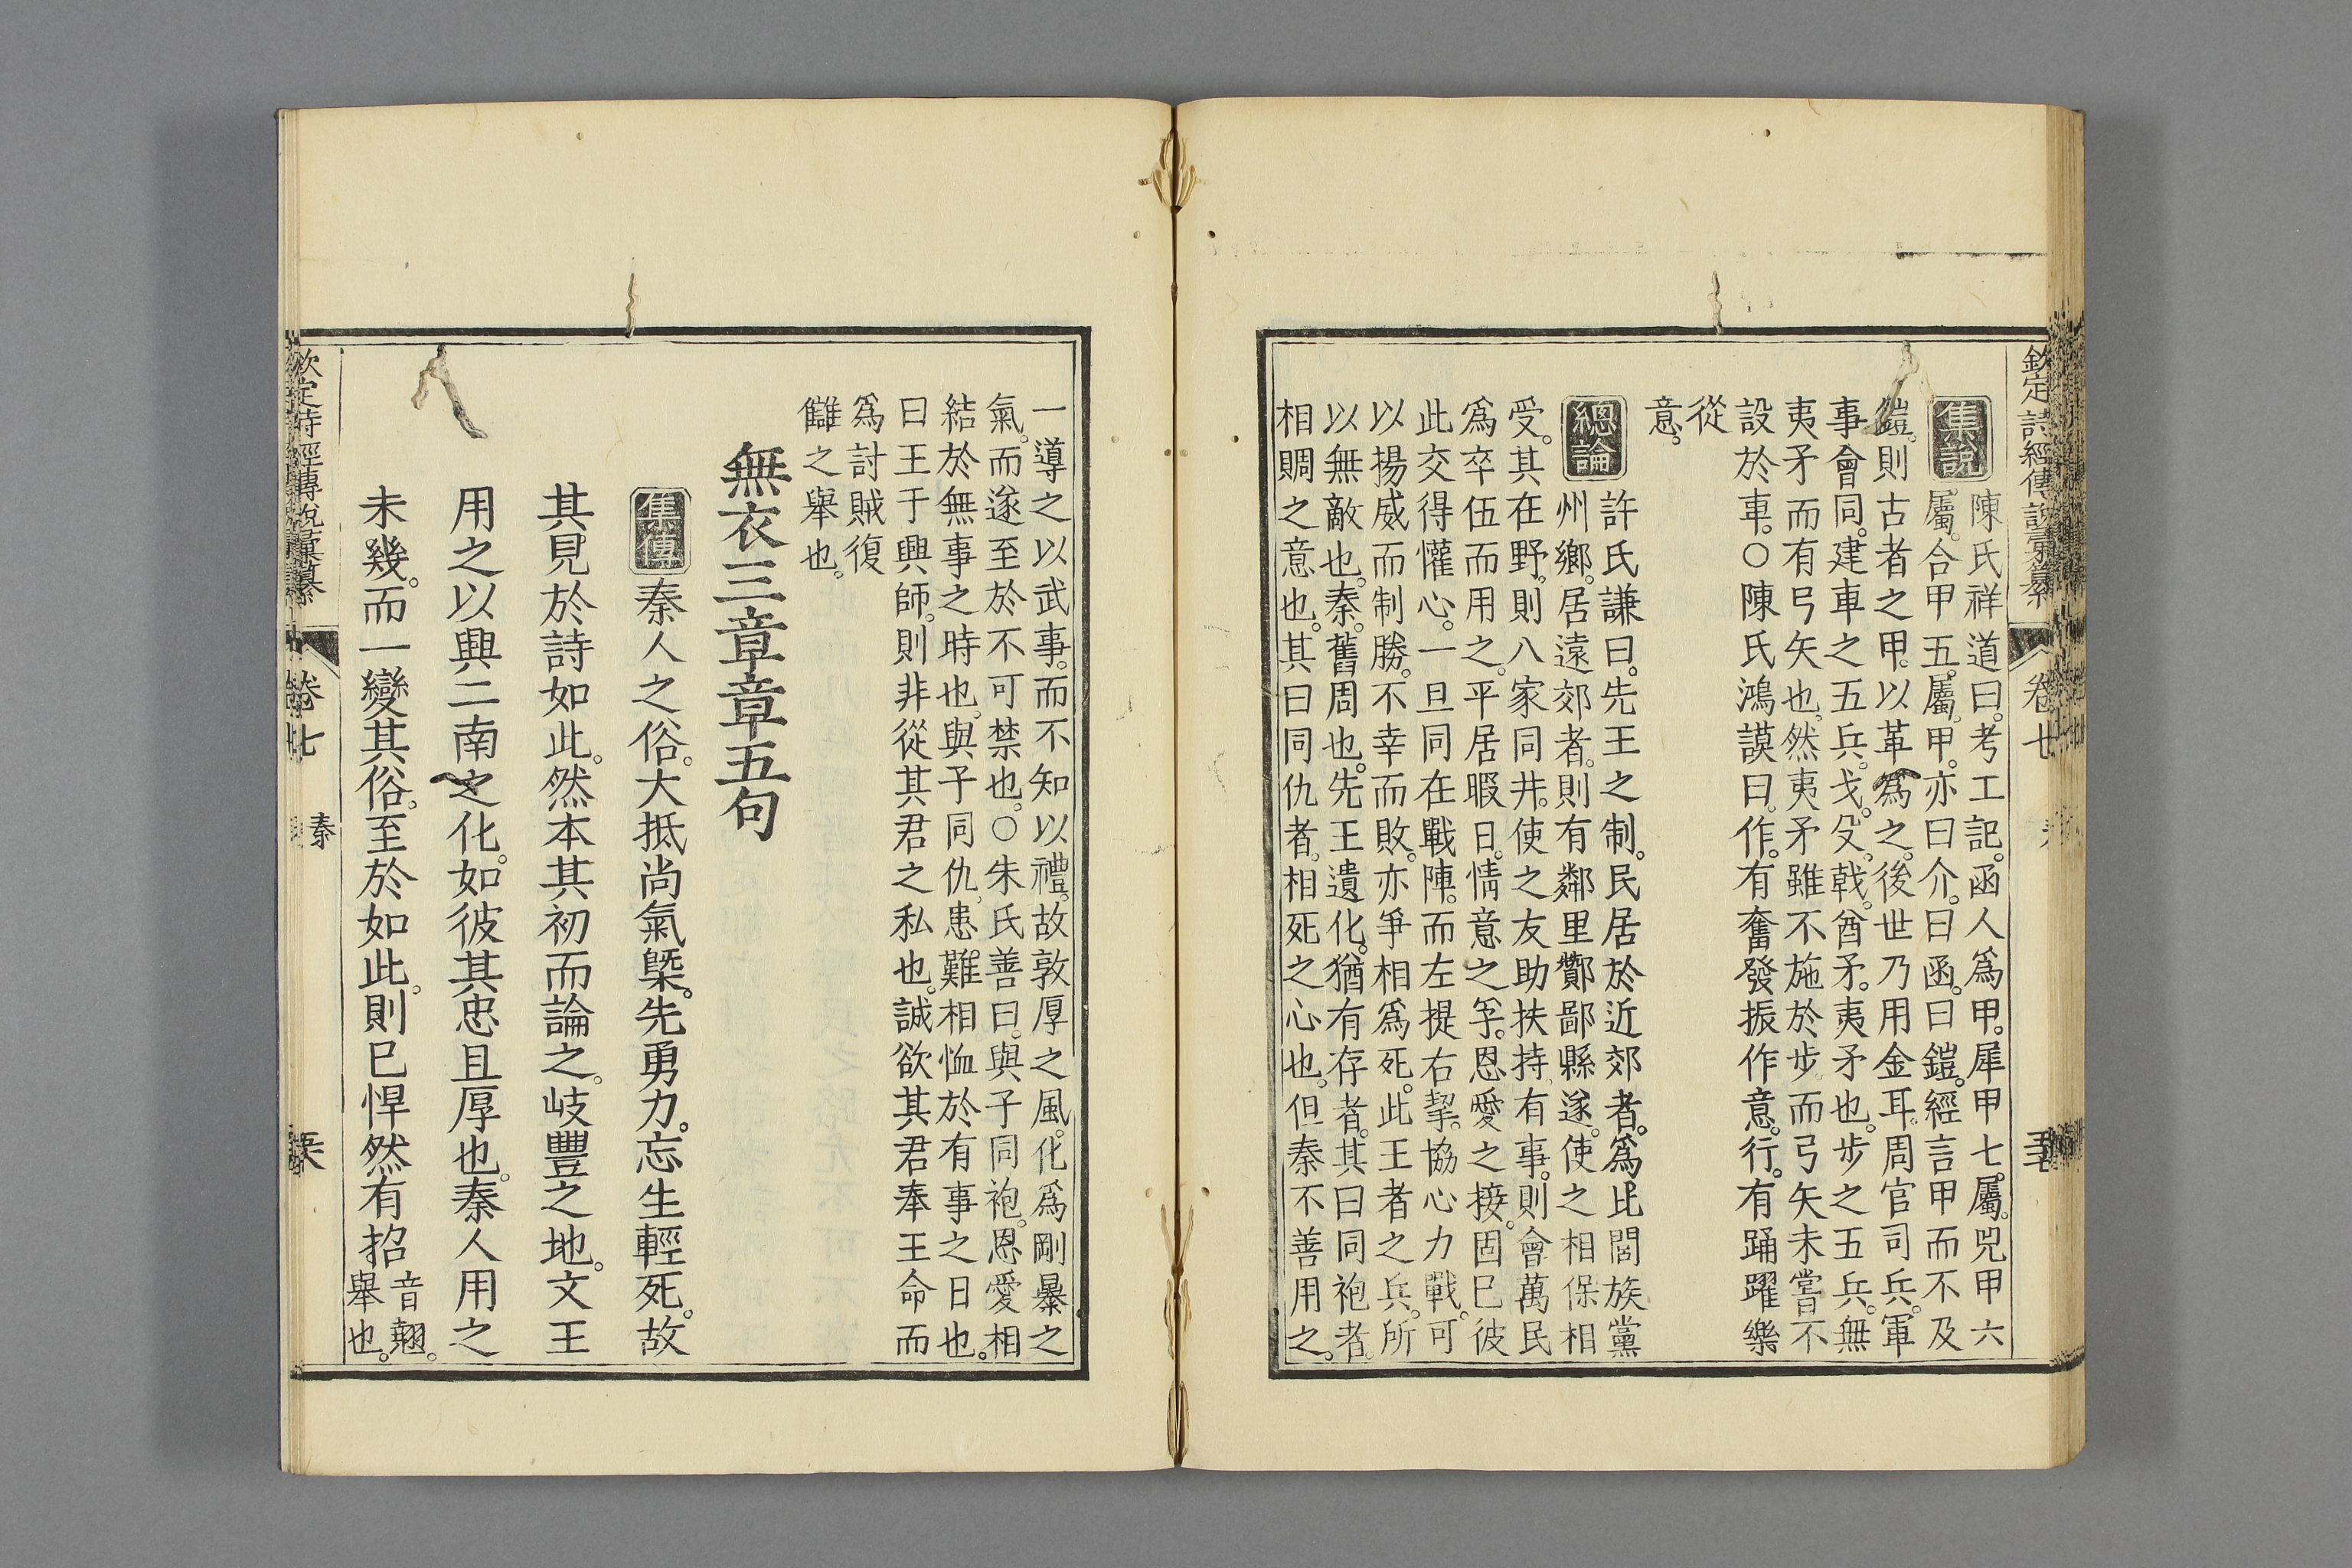 欽定詩經傳說彙纂 卷七
集說 陳氏祥道曰。考工記。函人爲甲。犀甲七屬。兕甲六
屬。合甲五屬。甲。亦曰介。曰函。曰鎧。經言甲而不及
鎧。則古者之甲。以革爲之。後世乃用金耳。周官司兵。軍
事會同。建車之五兵。戈。殳。戟。酋矛。夷矛也。步之五兵。無
夷矛而有弓矢也。然夷矛雖不施於步。而弓矢未嘗不
設於車。○陳氏鴻謨曰。作。有奮發振作意。行。有踊躍樂
從
意。
總論 許氏謙曰。先王之制。民居於近郊者。爲比閭族黨
州鄉。居遠郊者。則有鄰里酇鄙縣遂。使之相保相
受。其在野。則八家同井。使之友助扶持。有事。則會萬民
爲卒伍而用之。平居暇日。情意之孚。恩愛之接。固已彼
此交得懽心。一旦同在戰陣。而左提右挈。協心力戰。可
以揚威而制勝。不幸而敗。亦爭相爲死。此王者之兵。所
以無敵也。秦。舊周也。先王遺化。猶有存者。其曰同袍者。
相賙之意也。其曰同仇者。相死之心也。但秦不善用之。
一導之以武事。而不知以禮。故敦厚之風。化爲剛暴之
氣。而遂至於不可禁也。○朱氏善曰。與子同袍。恩愛相
結於無事之時也。與子同仇。患難相恤於有事之日也。
曰王于興師。則非從其君之私也。誠欲其君奉王命而
爲討賊復
讎之舉也。
無衣三章章五句
集傳 秦人之俗。大抵尚氣槩。先勇力。忘生輕死。故
其見於詩如此。然本其初而論之。岐豐之地。文王
用之以興二南之化。如彼其忠且厚也。秦人用之
未幾。而一變其俗。至於如此。則已悍然有招音翹。舉也。
欽定詩經傳說彙纂 卷七 秦